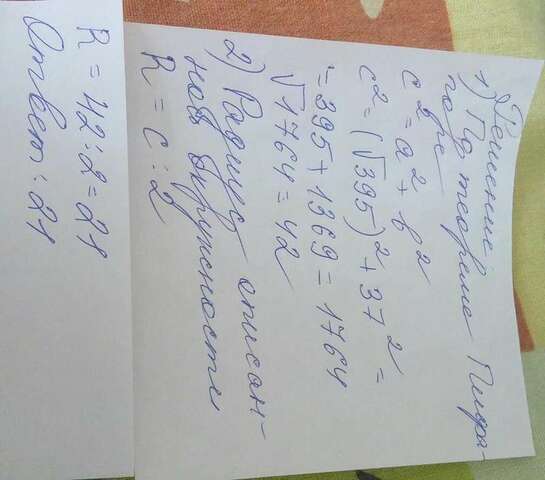 Решение:
1) По теореме Пифа-
горе
c² = a² + b²
c² = (√395)² + 37² =
= 395 + 1369 = 1764
√1764 = 42
2) Радиус описан-
ной окружности
R = c : 2
R = 42 : 2 = 21
Ответ: 21